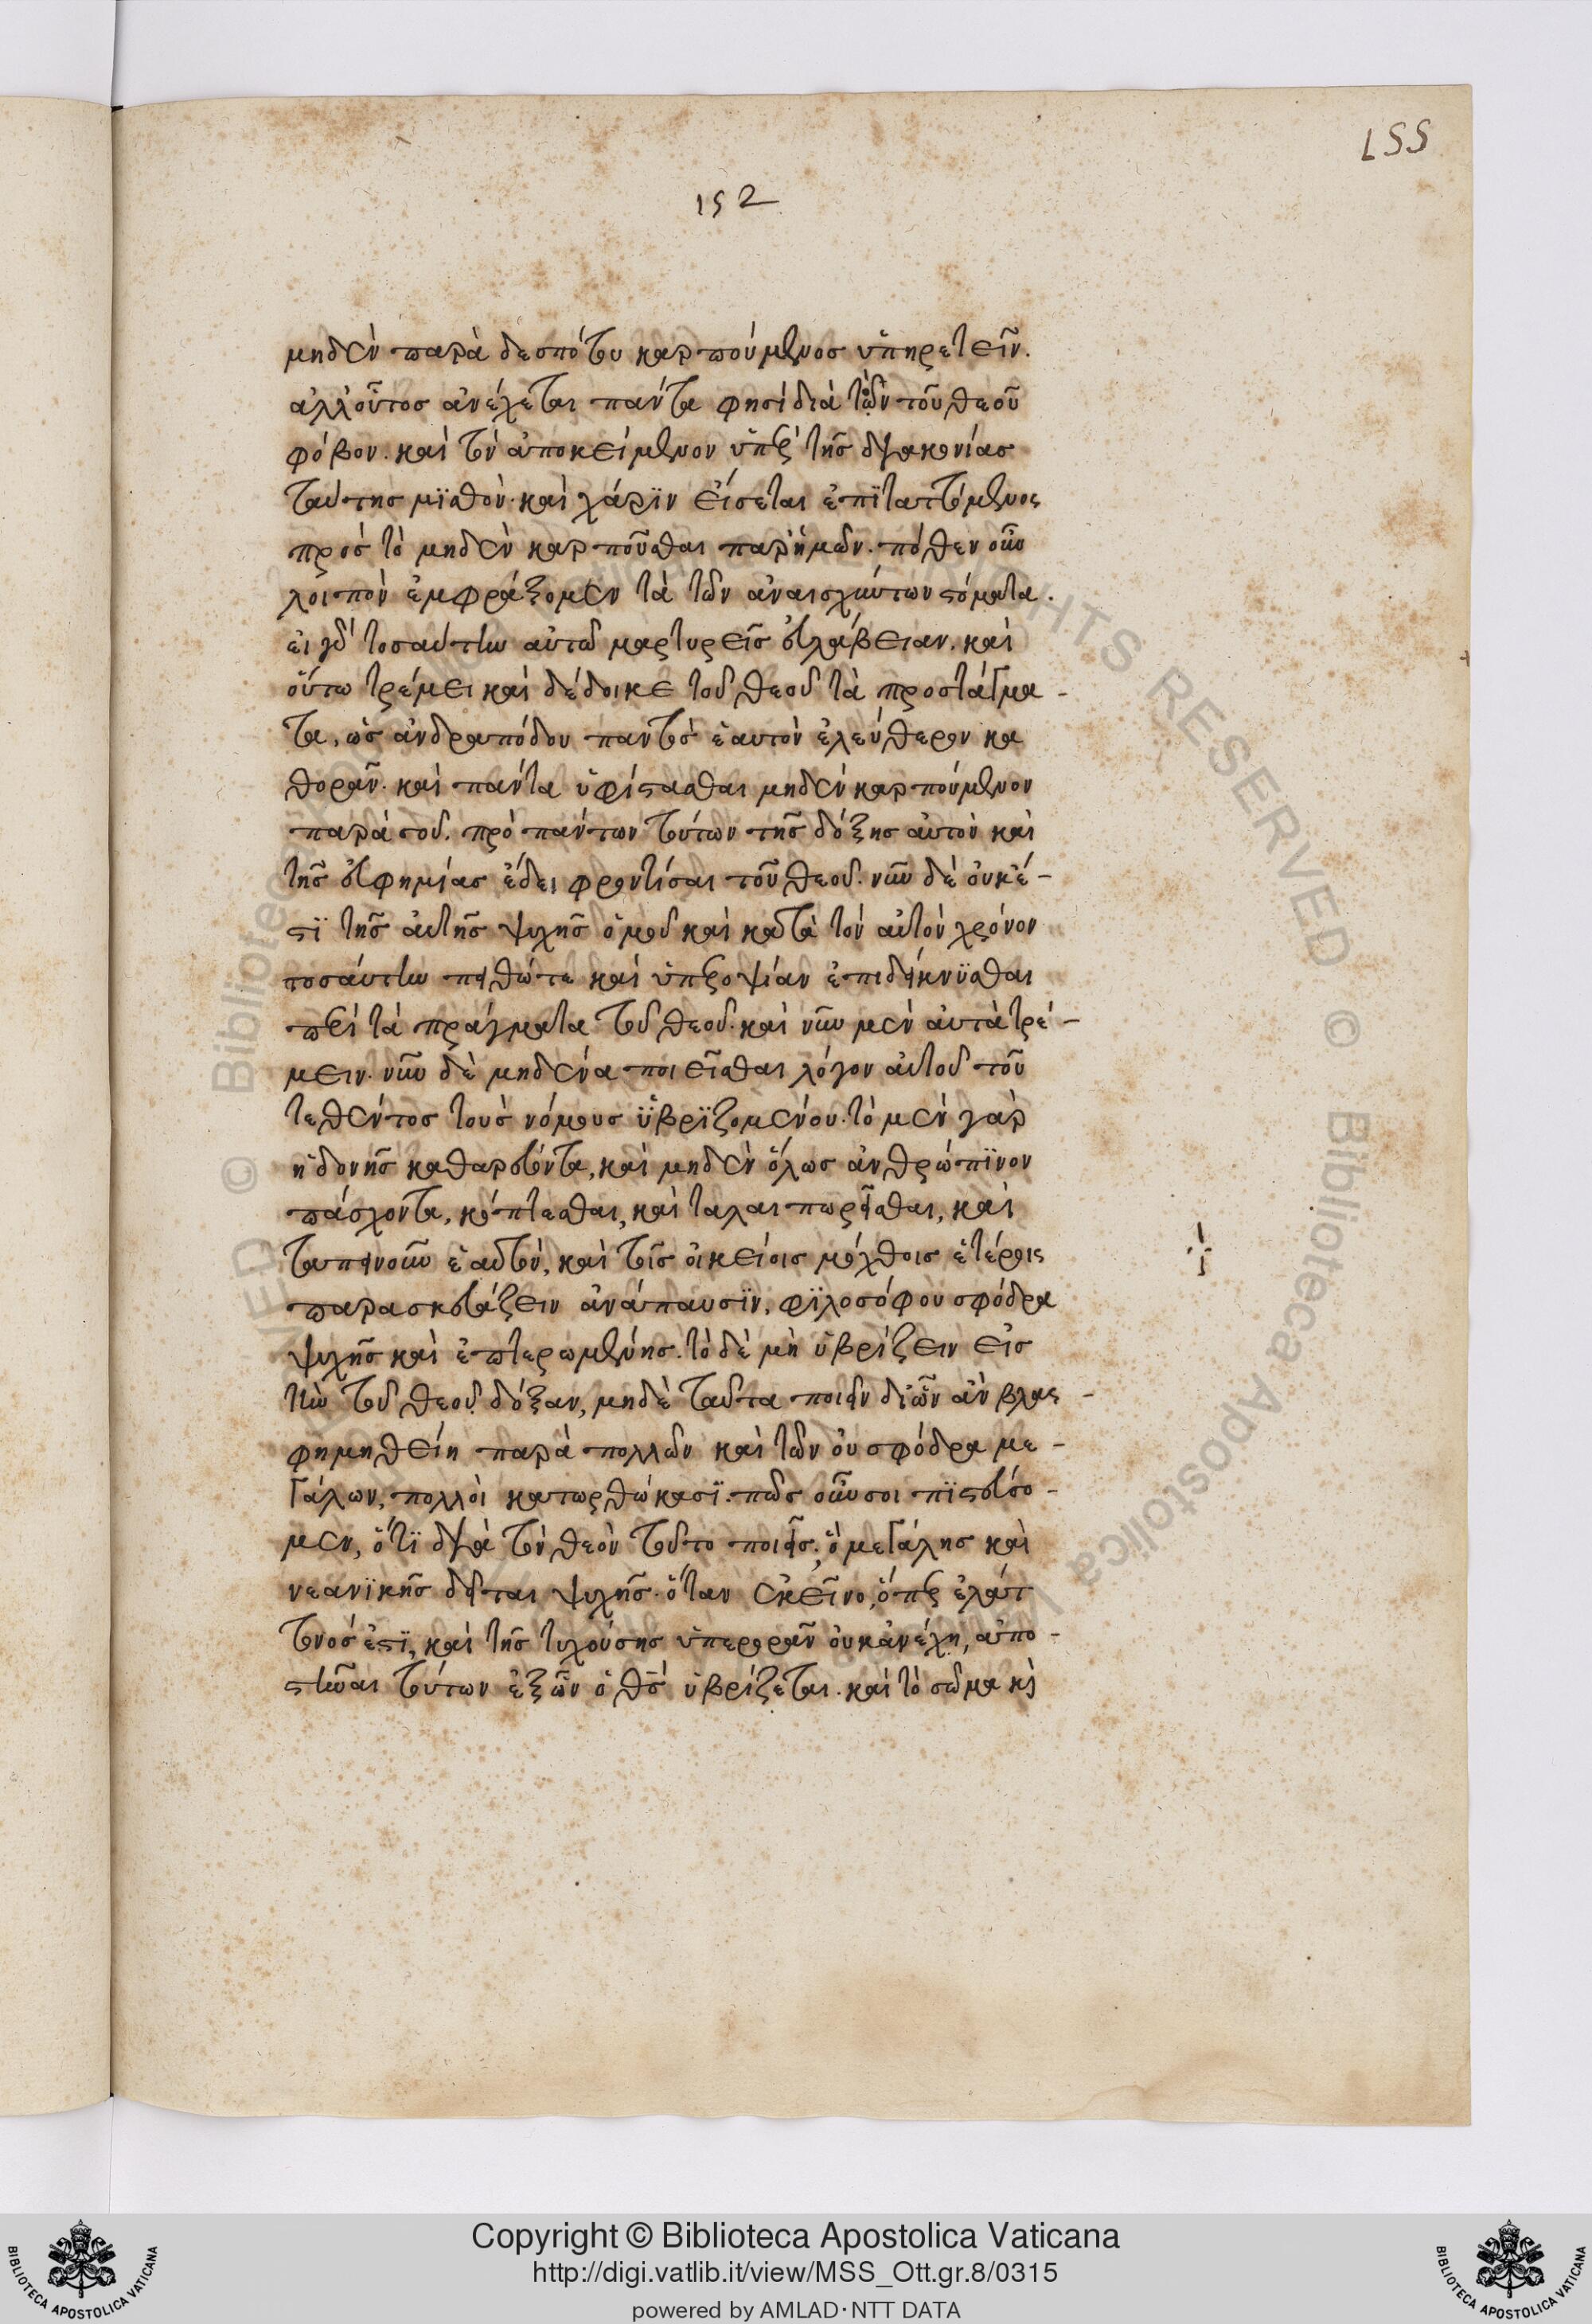 155
152
μηδὲν παρὰ δεσπότου καρπούμενος ὑπηρετεῖν.
ἀλλ' οὗτος ἀνέχεται πάντα φησὶ διὰ τὸν τοῦ θεοῦ
φόβον. καὶ τὸν ἀποκείμενον ὑπὲρ τῆς διακονίας
ταύτης μϊσθόν. καὶ χάρϊν εἴσεται ἐπϊταττόμενος
πρὸς τὸ μηδὲν καρποῦσθαι παρ' ἡμῶν. πόθεν οὖν
λοιπὸν ἐμφράξομεν τὰ τῶν ἀναισχύντων στόματα.
εἰ γὰρ τοσαύτην αὐτῷ μαρτυρεῖς εὐλάβειαν. καὶ
οὕτω τρέμει καὶ δέδοικε τοῦ θεοῦ τὰ προστάγμα-
τα, ὡς ἀνδραπόδου παντὸς ἑαυτὸν ἐλεύθερον κα
θορᾶν. καὶ πάντα ὑφίστασθαι μηδὲν καρπούμενον
παρὰ σοῦ. πρὸ πάντων τούτων τῆς δόξης αὐτὸν καὶ
τῆς εὐφημίας ἔδει φροντίσαι τοῦ θεοῦ. νῦν δὲ οὐκ ἔ-
στϊ τῆς αὐτῆς ψυχῆς ὁμοῦ καὶ κατὰ τὸν αὐτὸν χρόνον
τοσαύτην πειθώ τε καὶ ὑπεροψίαν ἐπιδείκνϋσθαι
περὶ τὰ πράγματα τοῦ θεοῦ. καὶ νῦν μὲν αὐτὰ τρέ-
μειν. νῦν δὲ μηδένα ποιεῖσθαι λόγον αὐτοῦ τοῦ
τεθέντος τοὺς νόμους ὑβρϊζομένου. τὸ μὲν γὰρ
ἡδονῆς καθαρεύοντα, καὶ μηδὲν ὅλως ἀνθρώπϊνον
πάσχοντα, κόπτεσθαι, καὶ ταλαιπωρεῖσθαι, καὶ
ταπεινοῦν ἑαυτόν, καὶ τοῖς οἰκείοις μόχθοις ἑτέροις
παρασκευάζειν ἀνάπαυσϊν, φϊλοσόφου σφόδρα
ψυχῆς καὶ ἐπτερωμένης. τὸ δὲ μὴ ὑβρίζειν εἰς
τὴν τοῦ θεοῦ δόξαν, μηδὲ ταῦτα ποιεῖν δι' ὧν ἂν βλασ-
φημηθείη παρὰ πολλῶν καὶ τῶν οὐ σφόδρα με-
γάλων, πολλοὶ κατωρθώκασϊ. πῶς οὖν σοι πϊστεύσο-
μεν, ὅτϊ διὰ τὸν θεὸν τοῦτο ποιεῖς. ὃ μεγάλης καὶ
νεανϊκῆς δεῖται ψυχῆς. ὅταν ἐκεῖνο, ὅπερ ἐλάτ
τονός ἐστϊ, καὶ τῆς τυχούσης ὑπερορᾶν οὐκ ἀνέχῃ, ἀπο-
στῆναι τούτων ἐξ ὧν ὁ θς ὑβρίζεται. καὶ τὸ σῶμα κὶ
Copyright © Biblioteca Apostolica Vaticana
http://digi.vatlib.it/view/MSS_Ott.gr.8/0315
powered by AMLAD·NTT DATA